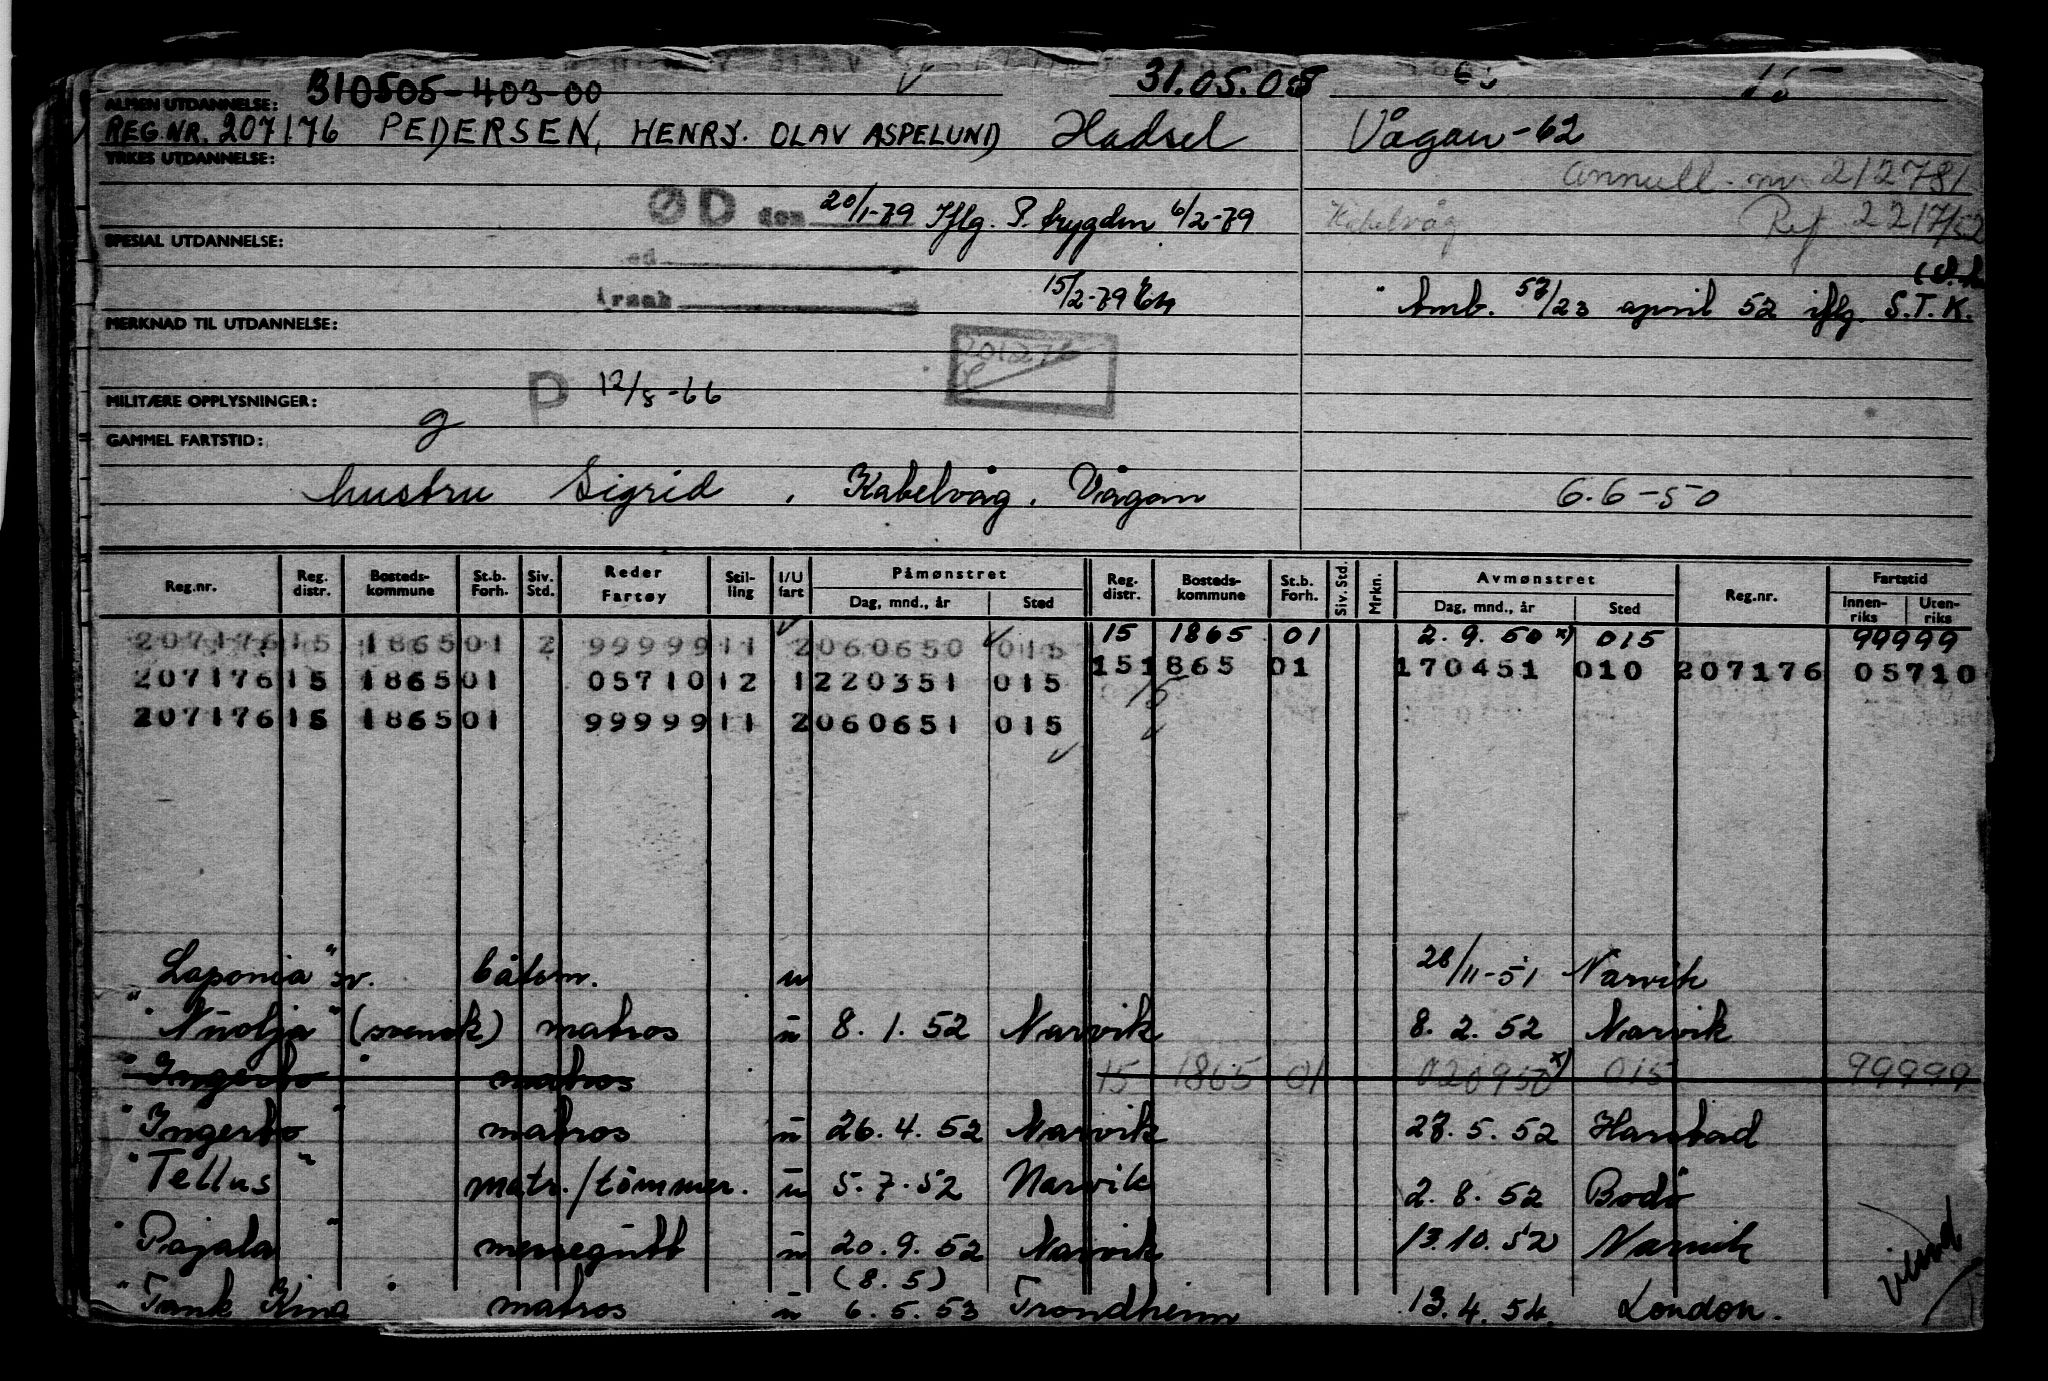 310505-403-00 31.05.05
ALMEN UTDANNELSE:
REG.NR. 207176 PEDERSEN, HENRY. OLAV ASPELUND Hadsel Vågan-62
YRKES UTDANNELSE: Annull. nr 212781
ØD den 20/1-79 Iflg. P. trygden 6/2-79 Kabelvåg Ref 2217/52
SPESIAL UTDANNELSE:
ed
Årsak 15/2-79 Amb. 57/23 april 52 iflg. S.T.K.
MERKNAD TIL UTDANNELSE:
P 12/8-66
MILITÆRE OPPLYSNINGER:
g
GAMMEL FARTSTID:
hustru Sigrid, Kabelvåg, Vågan 6.6-50
Reg.nr. Reg. distr. Bosteds-kommune St.b. Forh. Siv. Std. Reder Fartøy Stil-ling I/U fart Påmønstret Dag, mnd., år Sted Reg. distr. Bosteds-kommune St.b. Forh. Siv. Std. Mrkn. Avmønstret Dag, mnd., år Sted Reg.nr. Fartstid Innen-riks Uten-riks
207176 15 1865 01 2 99999 11 2 060650 015 15 1865 01 2.9.50 x) 015 99999
207176 15 1865 01 05710 12 1 220351 015 15 1865 01 170451 010 207176 05710
15
207176 15 1865 01 99999 11 2 060651 015
Laponia" sv. båtsm. u 28/11-51 Narvik
"Nuolja" (svensk) matros u 8.1.52 Narvik 8.2.52 Narvik
"Ingerto" matros 15 1865 01 020950 x) 015 99999
"Ingerto" matros u 26.4.52 Narvik 27.5.52 Harstad
"Tellus" matr./tömmer. u 5.7.52 Narvik 2.8.52 Bodö
"Pajala" messegutt u 20.9.52 Narvik 13.10.52 Narvik
(8.5)
"Tank King" matros u 6.5.53 Trondheim 13.4.54 London.